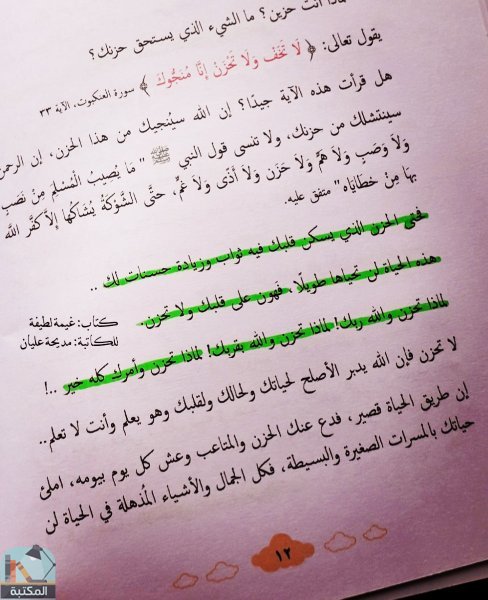 لماذا أنت حزين؟ ما الشيء الذي يستحق حزنك؟
يقول تعالى: ﴿ لَا تَخَفْ وَلَا تَحْزَنْ إِنَّا مُنَجُّوكَ ﴾ سورة العنكبوت، الآية ٣٣
هل قرأت هذه الآية جيدًا؟ إن الله سيُنجيك من هذا الحزن، إن الرحمن
سينتشلك من حزنك، ولا تنسى قول النبي ﷺ "مَا يُصِيبُ الْمُسْلِمَ مِنْ نَصَبٍ
وَلَا وَصَبٍ وَلَا هَمٍّ وَلَا حَزَنٍ وَلَا أَذًى وَلَا غَمٍّ، حَتَّى الشَّوْكَةُ يُشَاكُهَا إِلَّا كَفَّرَ اللَّه
بِهَا مِنْ خَطَايَاه" متفق عليه.
فحتى الحزن الذي يسكن قلبك فيه ثواب وزيادة حسنات لك ..
هذه الحياة لن تحياها طويلًا، فهون على قلبك ولا تحزن.
لماذا تحزن والله ربك! لماذا تحزن والله بقربك! لماذا تحزن وأمرك كله خير ..!
لا تحزن فإن الله يدبر الأصلح لحياتك ولحالك ولقلبك وهو يعلم وأنت لا تعلم..
إن طريق الحياة قصير، فدع عنك الحزن والمتاعب وعش كل يوم بيومه، املئ
حياتك بالمسرات الصغيرة والبسيطة، فكل الجمال والأشياء المُذهلة في الحياة لن
١٢
كتاب: غيمة لطيفة
للكاتبة: مديحة عليان
المكتبة